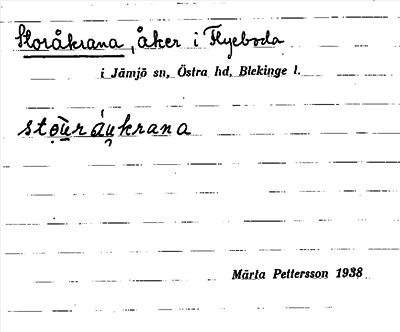 Storåkrana, åker i Flyeboda
i Jämjö sn, Östra hd, Blekinge l.
sto̤ṳr áu̯krana
Märta Pettersson 1938